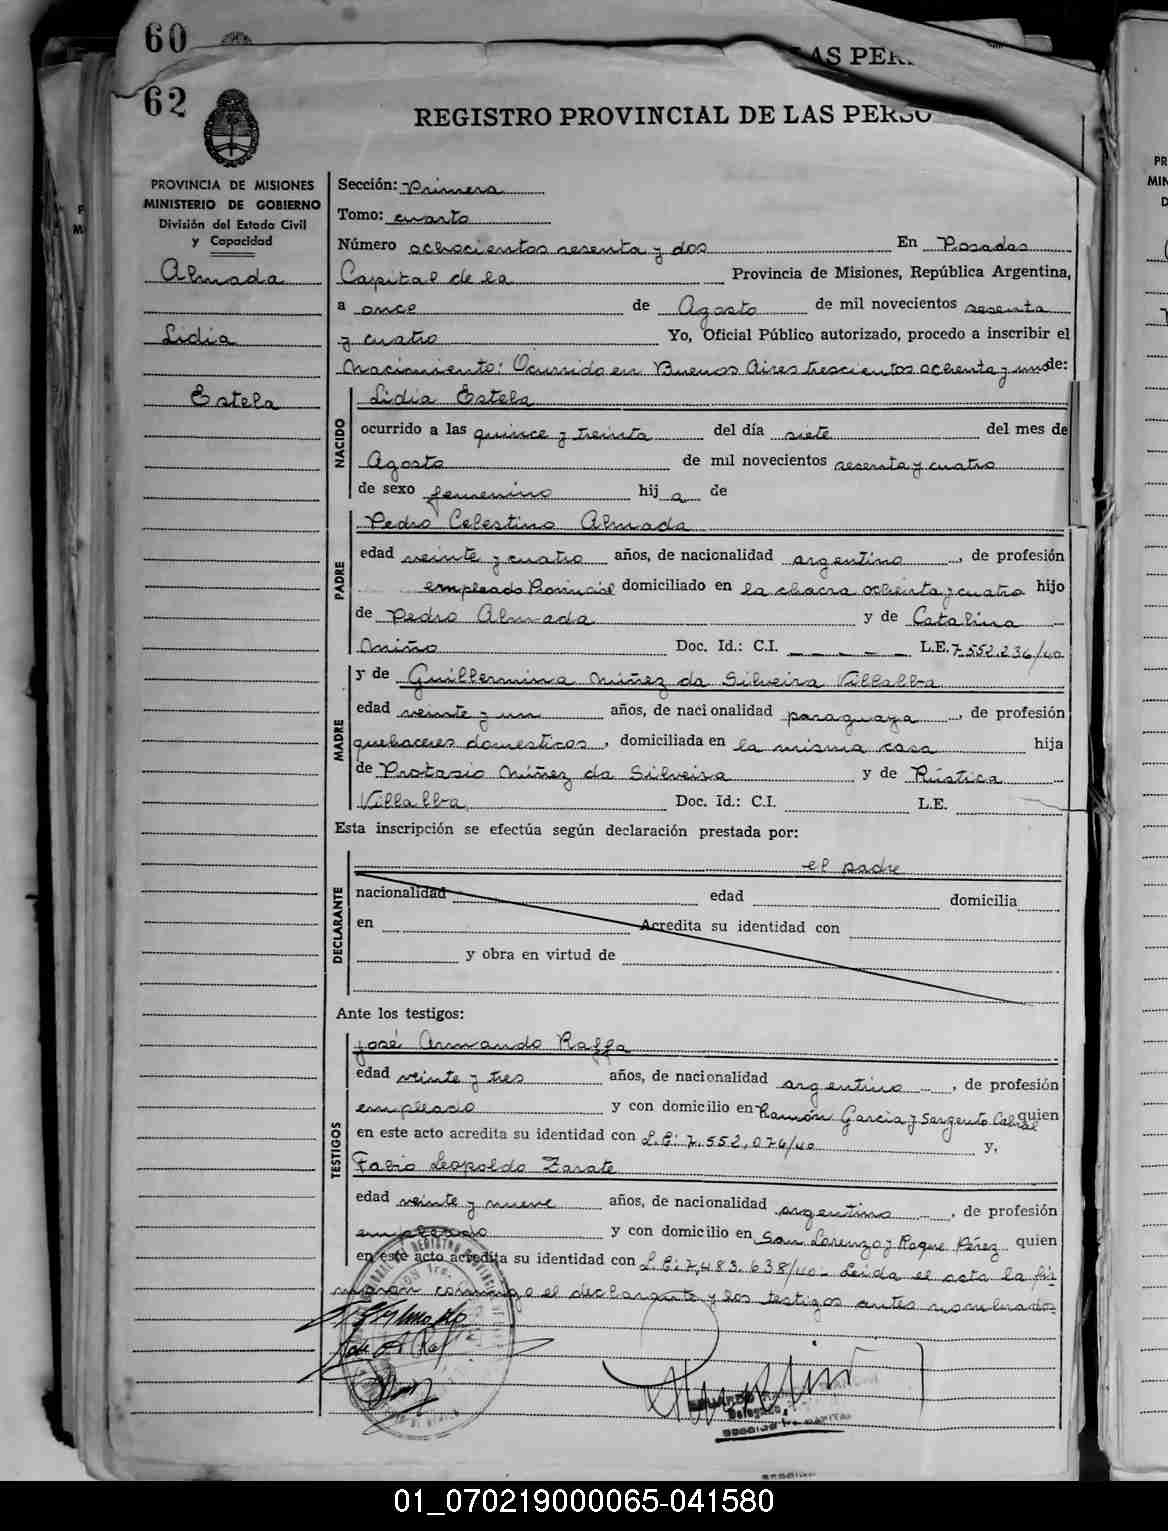 60
AS PER
62
REGISTRO PROVINCIAL DE LAS PERSO
PROVINCIA DE MISIONES
MINISTERIO DE GOBIERNO
División del Estado Civil
y Capacidad
Almada
Lidia
Estela
Sección: Primera
Tomo: cuarto
Número ochocientos sesenta y dos En Posadas
Capital de la Provincia de Misiones, República Argentina,
a once de Agosto de mil novecientos sesenta
y cuatro Yo, Oficial Público autorizado, procedo a inscribir el
Nacimiento: Ocurrido en Buenos Aires trescientos ochenta y uno de:
NACIDO
Lidia Estela
ocurrido a las quince y treinta del día siete del mes de
Agosto de mil novecientos sesenta y cuatro
de sexo femenino hij a de
PADRE
Pedro Celestino Almada
edad veinte y cuatro años, de nacionalidad argentino, de profesión
empleado Provincial domiciliado en la chacra ochenta y cuatro hijo
de Pedro Almada y de Catalina
Miño Doc. Id.: C.I. _ _ _ _ _ L.E. 7.552.236/40
MADRE
y de Guillermina Núñez da Silveira Villalba
edad veinte y un años, de nacionalidad paraguaya, de profesión
quehaceres domesticos, domiciliada en la misma casa hija
de Protasio Núñez da Silveira y de Rústica
Villalba Doc. Id.: C.I. L.E.
Esta inscripción se efectúa según declaración prestada por:
DECLARANTE
el padre
nacionalidad edad domicilia
en Acredita su identidad con
y obra en virtud de
Ante los testigos:
TESTIGOS
José Armando Raffa
edad veinte y tres años, de nacionalidad argentino, de profesión
empleado y con domicilio en Ramón Garcia y Sargento Cabral quien
en este acto acredita su identidad con L.E: 7.552.076/40 y,
Fabio Leopoldo Zarate
edad veinte y nueve años, de nacionalidad argentino, de profesión
empleado y con domicilio en San Lorenzo y Roque Pérez quien
en este acto acredita su identidad con L.E: 7.483.638/40 - Leida el acta la fir-
maron conmigo el declarante y los testigos antes nombrados
Delegado
01_070219000065-041580